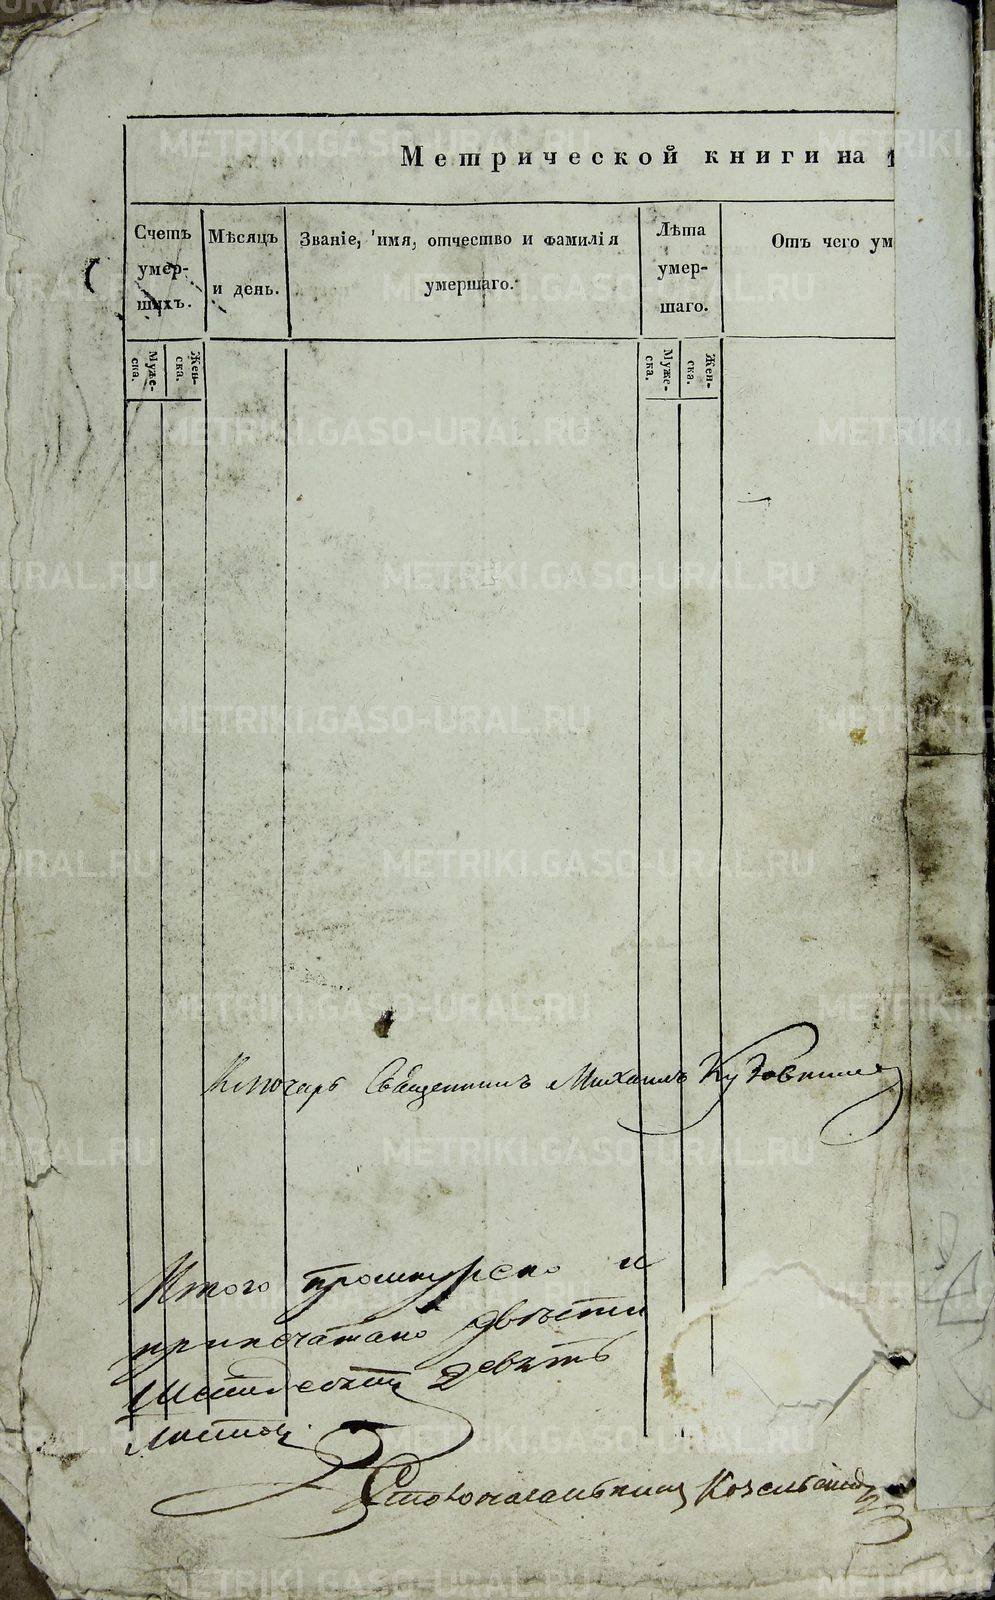 Метрической книги на 1
Счетъ умер- шихъ.
Мѣсяцъ и день.
Званіе, имя, отчество и фамилія умершаго.
Лѣта умер- шаго.
Отъ чего ум
Муже- ска.
Жен- ска.
Муже- ска.
Жен- ска.
Ключарь Священникъ Михаилъ
Итого прошнурено и
припечатано двѣсти
шестьдесятъ девять
листовъ.
Столоначальникъ
METRIKI.GASO-URAL.RU